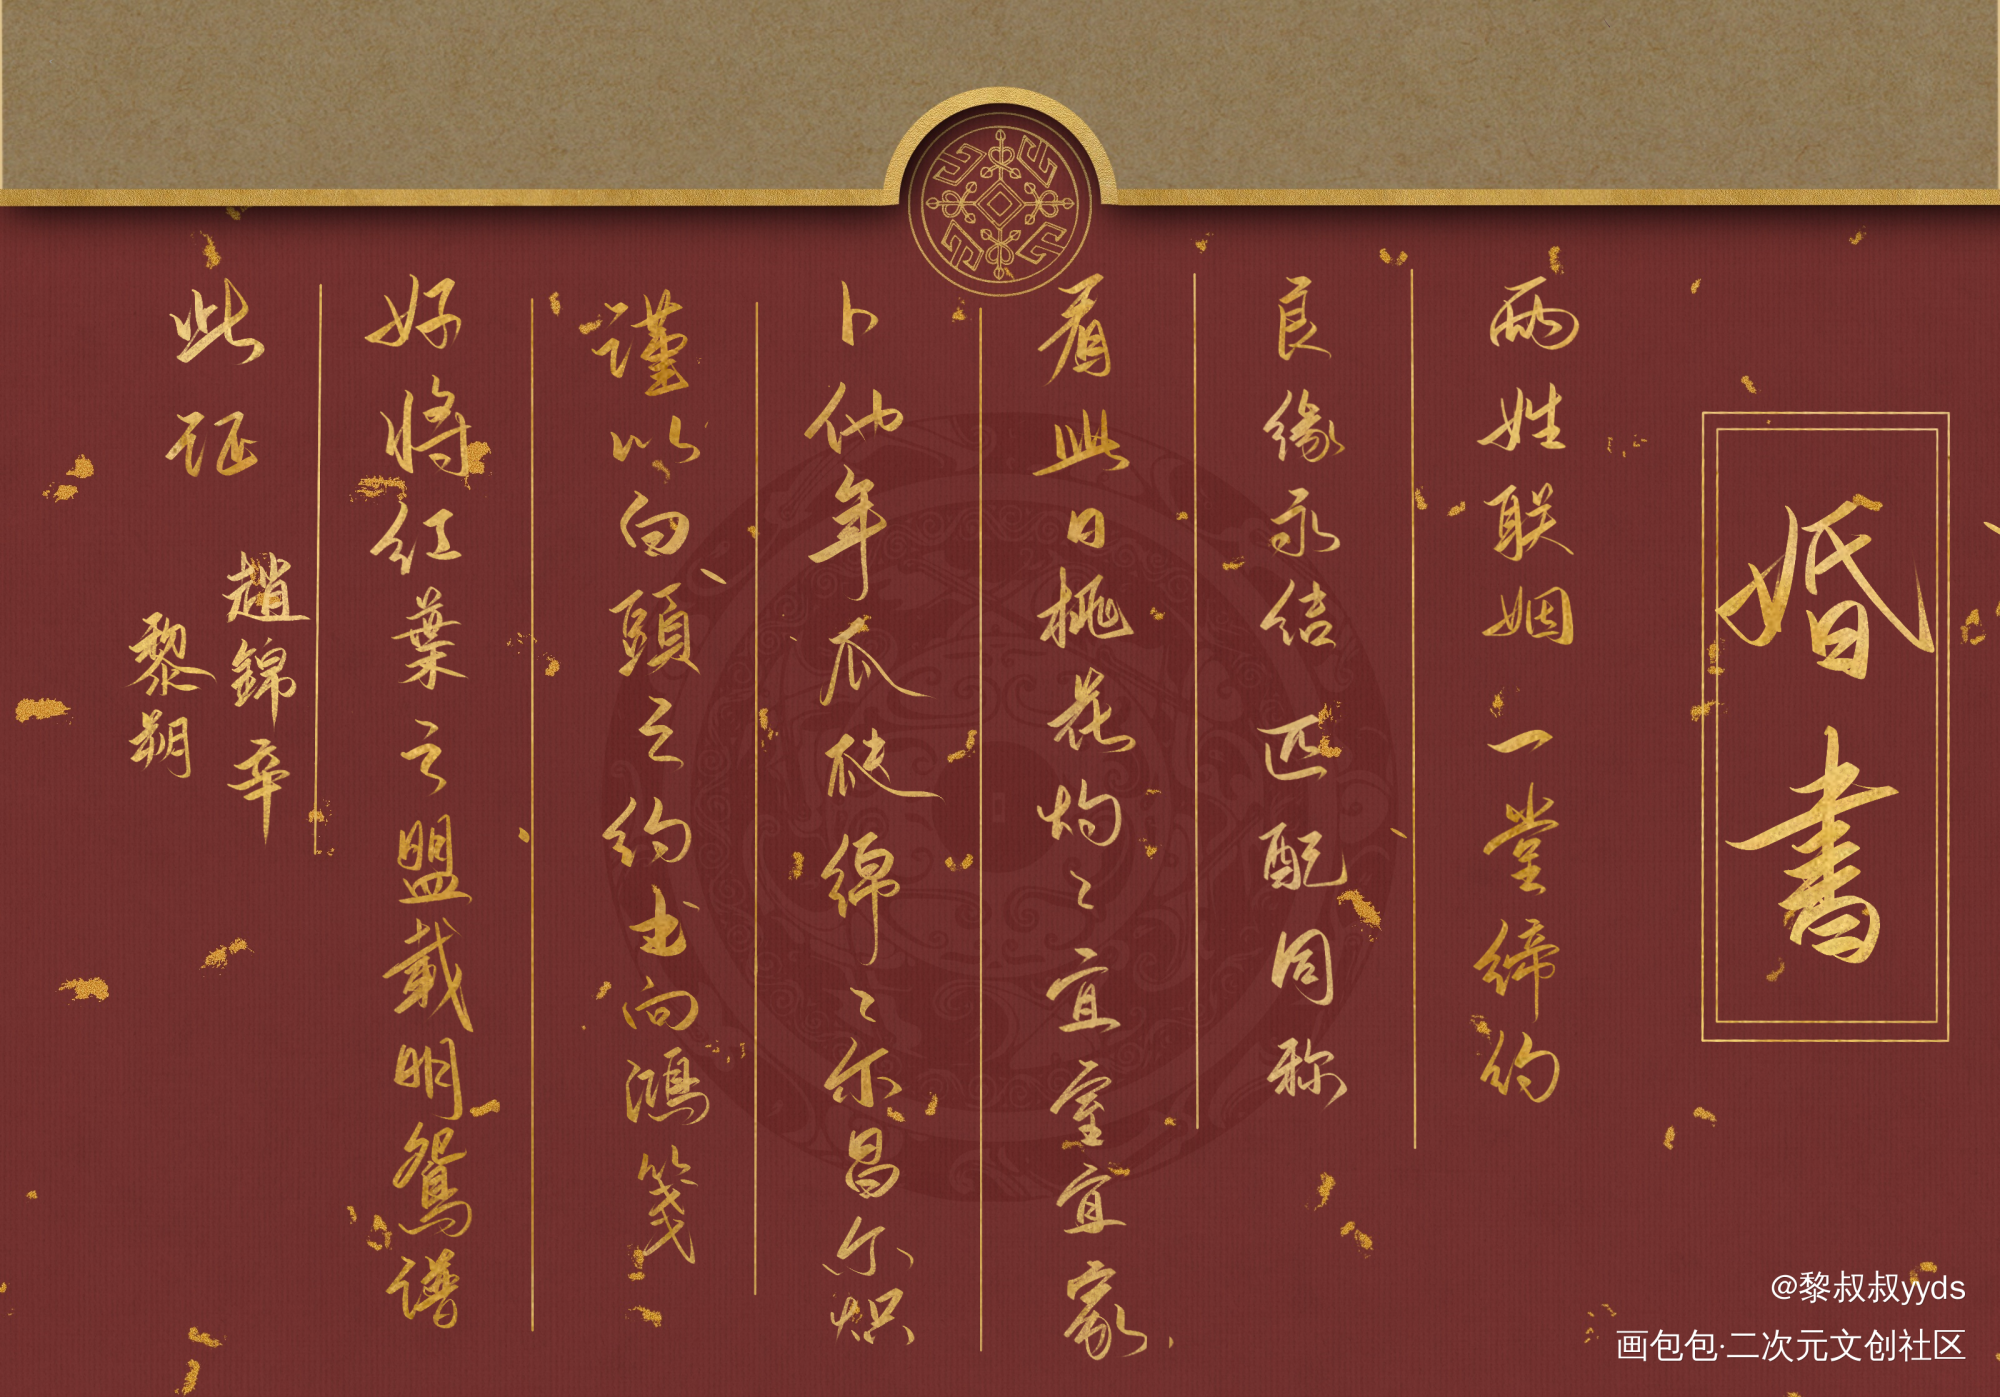 婚書
两姓联姻 一堂缔约
良缘永结 匹配同称
看此日桃花灼灼宜室宜家
卜他年瓜瓞绵绵尔昌尔炽
謹以白頭之约书向鴻笺
好将红葉之盟载明鸳谱
此证
趙錦辛
黎朔
@黎叔叔yyds
画包包·二次元文创社区